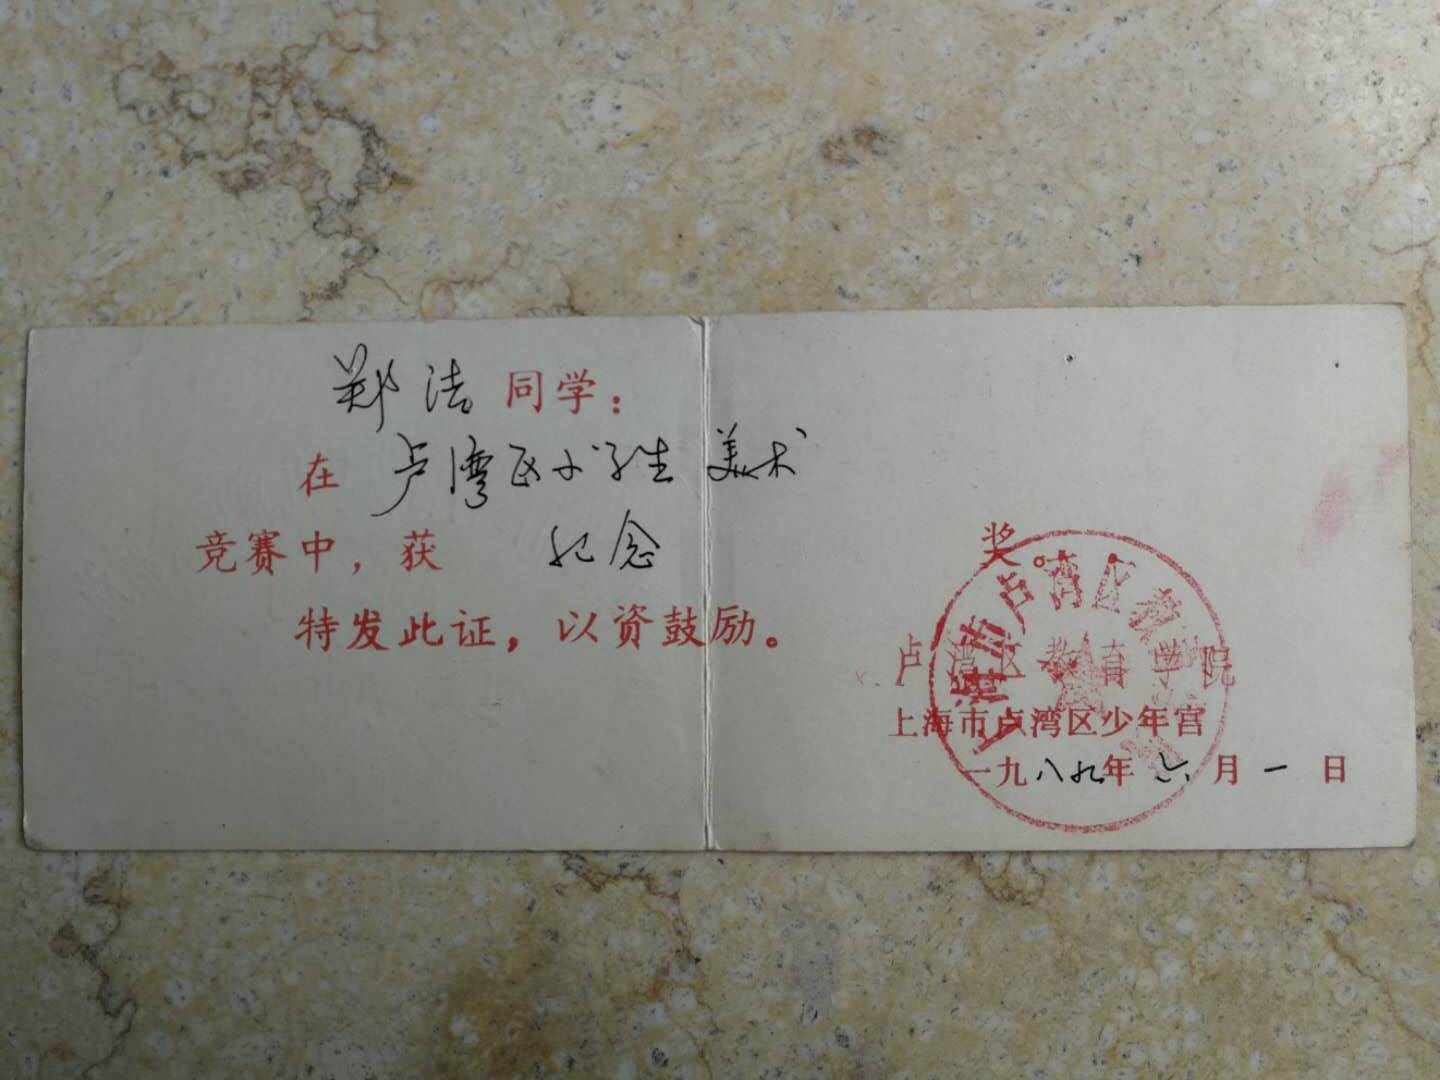 郑洁同学：
在卢湾区小学生美术
竞赛中，获纪念奖。
特发此证，以资鼓励。
卢湾区教育学院
上海市卢湾区少年宫
一九八九年六月一日
上海市卢湾区教